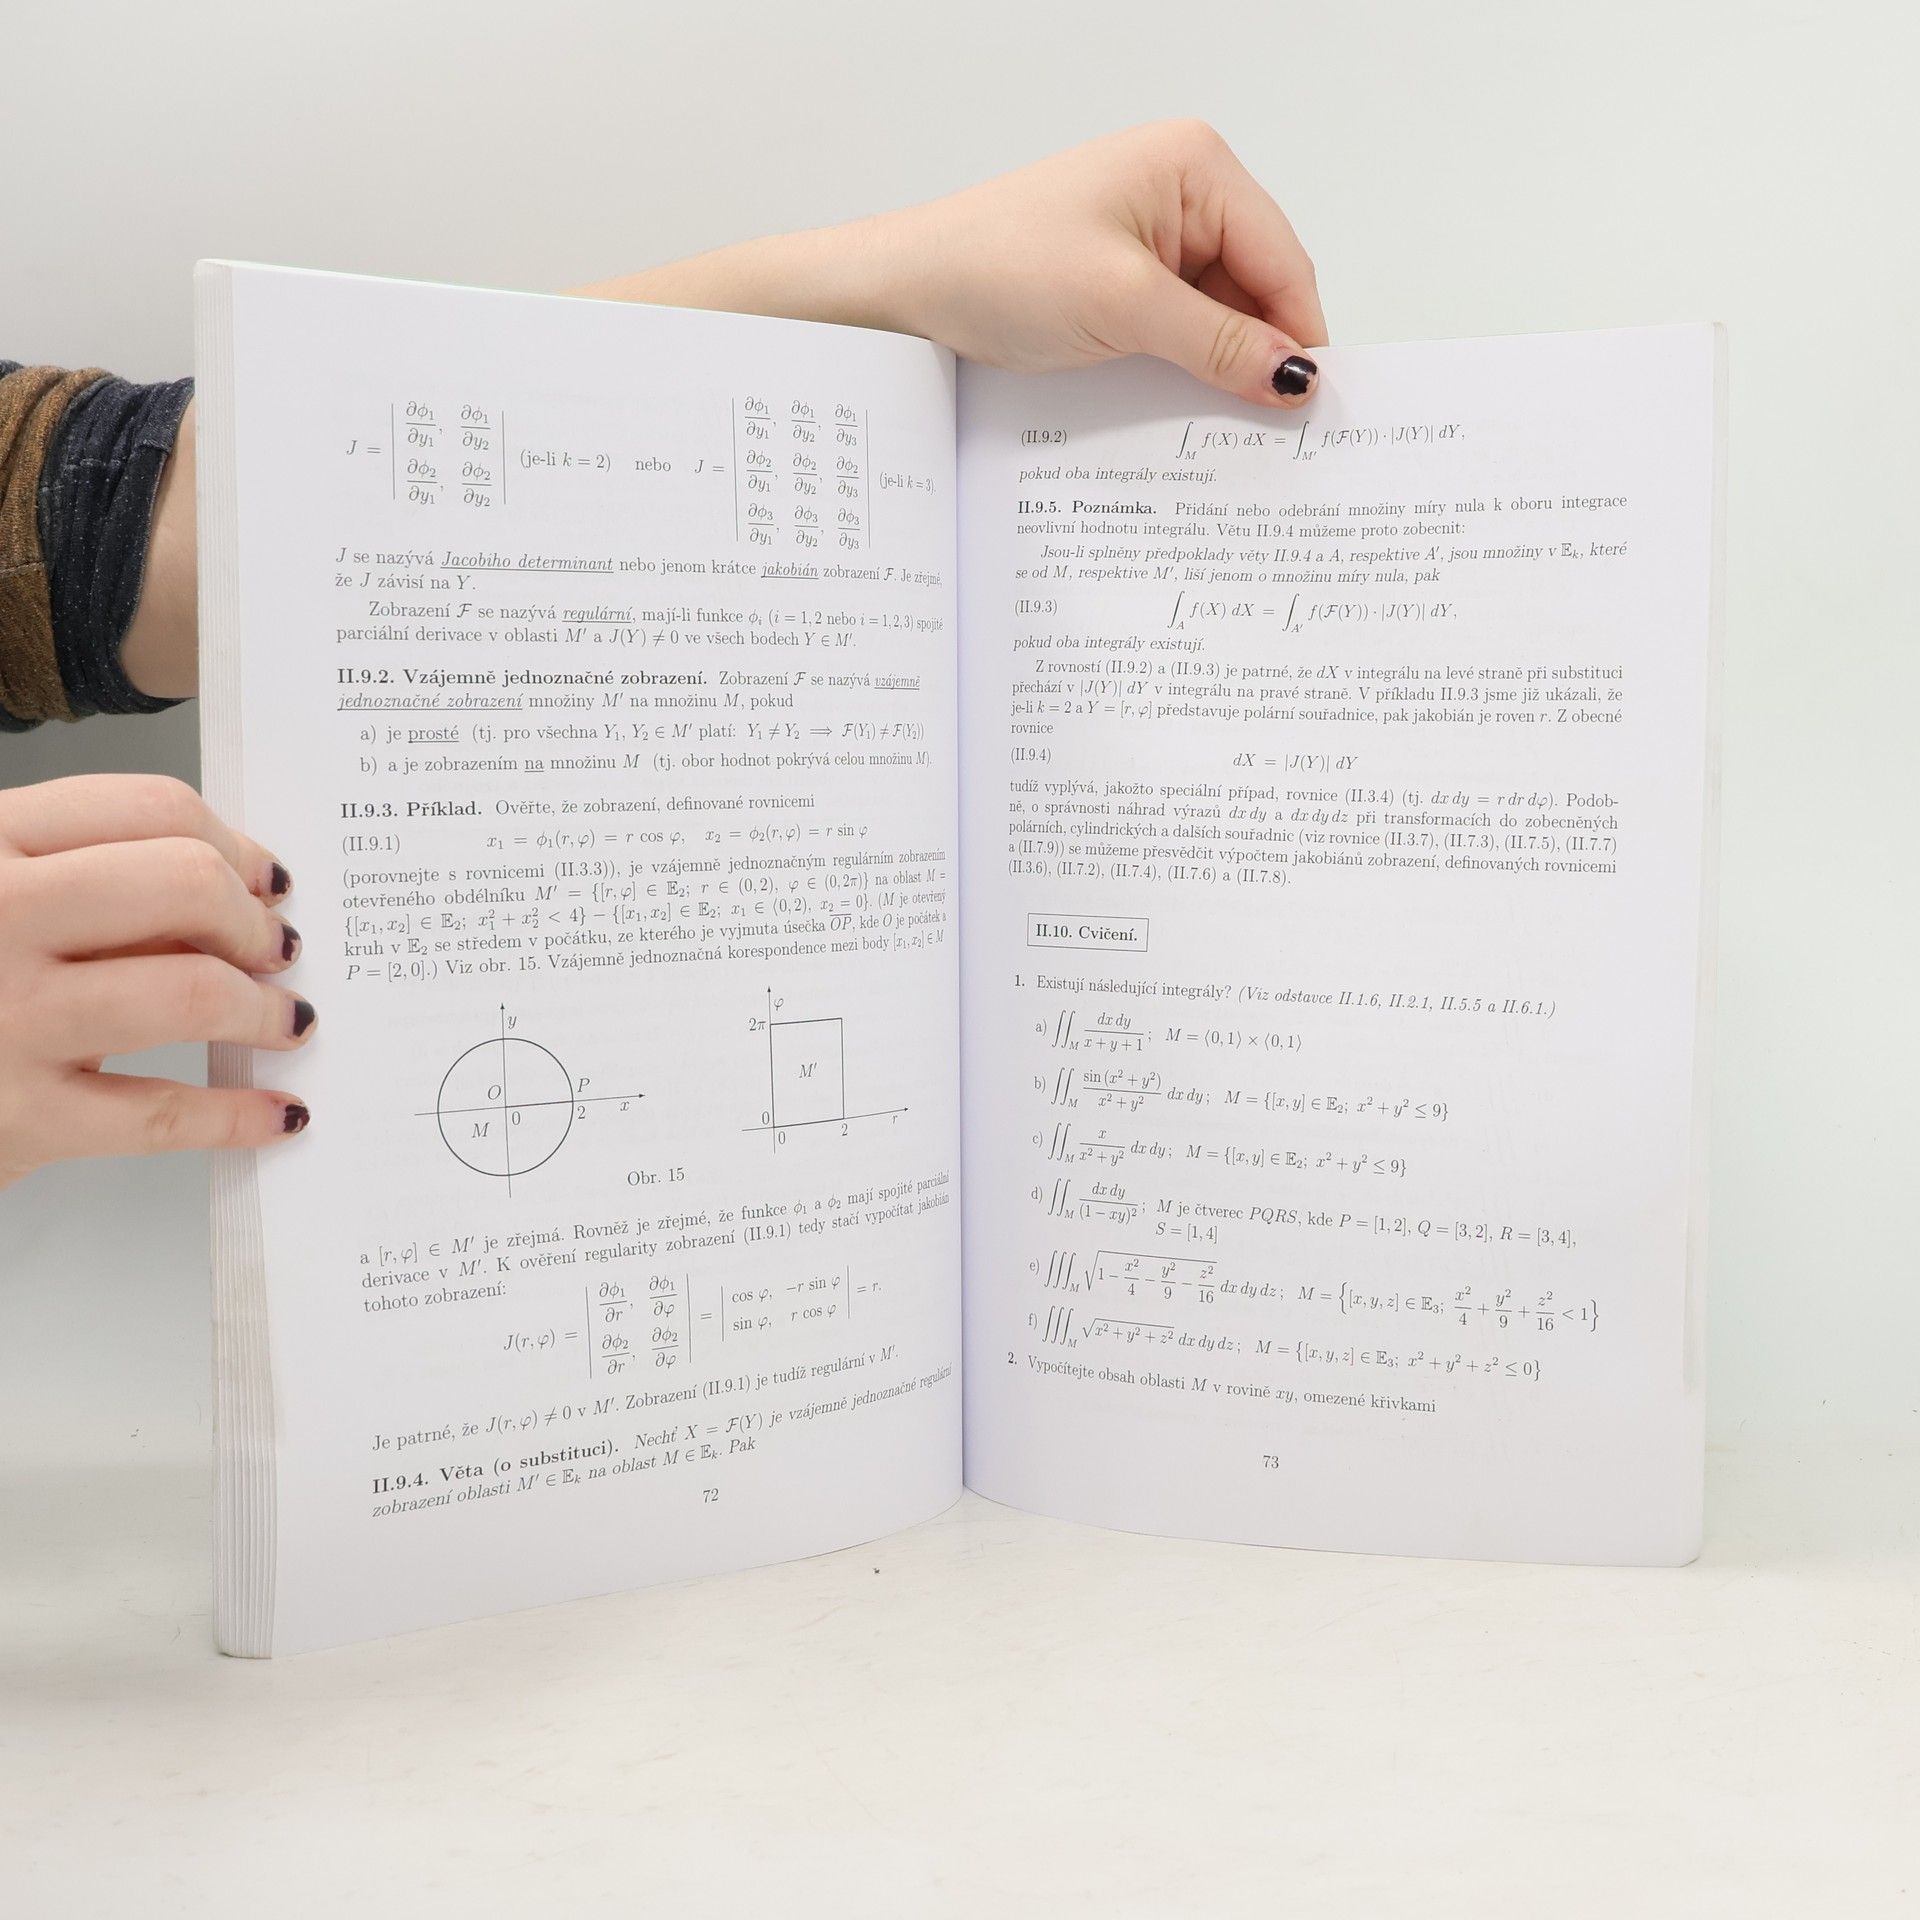 J = | ∂ϕ₁/∂y₁, ∂ϕ₁/∂y₂ ; ∂ϕ₂/∂y₁, ∂ϕ₂/∂y₂ | (je-li k = 2) nebo J = | ∂ϕ₁/∂y₁, ∂ϕ₁/∂y₂, ∂ϕ₁/∂y₃ ; ∂ϕ₂/∂y₁, ∂ϕ₂/∂y₂, ∂ϕ₂/∂y₃ ; ∂ϕ₃/∂y₁, ∂ϕ₃/∂y₂, ∂ϕ₃/∂y₃ | (je-li k = 3).
J se nazývá Jacobiho determinant nebo jenom krátce jakobián zobrazení ℱ. Je zřejmé,
že J závisí na Y.
Zobrazení ℱ se nazývá regulární, mají-li funkce ϕᵢ (i = 1, 2 nebo i = 1, 2, 3) spojité
parciální derivace v oblasti M′ a J(Y) ≠ 0 ve všech bodech Y ∈ M′.
II.9.2. Vzájemně jednoznačné zobrazení. Zobrazení ℱ se nazývá vzájemně
jednoznačné zobrazení množiny M′ na množinu M, pokud
a) je prosté (tj. pro všechna Y₁, Y₂ ∈ M′ platí: Y₁ ≠ Y₂ ⟹ ℱ(Y₁) ≠ ℱ(Y₂))
b) a je zobrazením na množinu M (tj. obor hodnot pokrývá celou množinu M).
II.9.3. Příklad. Ověřte, že zobrazení, definované rovnicemi
(II.9.1) x₁ = ϕ₁(r, φ) = r cos φ, x₂ = ϕ₂(r, φ) = r sin φ
(porovnejte s rovnicemi (II.3.3)), je vzájemně jednoznačným regulárním zobrazením
otevřeného obdélníku M′ = {[r, φ] ∈ 𝔼₂; r ∈ (0, 2), φ ∈ (0, 2π)} na oblast M =
{[x₁, x₂] ∈ 𝔼₂; x₁² + x₂² < 4} − {[x₁, x₂] ∈ 𝔼₂; x₁ ∈ ⟨0, 2), x₂ = 0}. (M je otevřený
kruh v 𝔼₂ se středem v počátku, ze kterého je vyjmuta úsečka OP, kde O je počátek a
P = [2, 0].) Viz obr. 15. Vzájemně jednoznačná korespondence mezi body [x₁, x₂] ∈ M
y
O P
M 0 2 x
φ
2π
M′
0
0 2 r
Obr. 15
a [r, φ] ∈ M′ je zřejmá. Rovněž je zřejmé, že funkce ϕ₁ a ϕ₂ mají spojité parciální
derivace v M′. K ověření regularity zobrazení (II.9.1) tedy stačí vypočítat jakobián
tohoto zobrazení:
J(r, φ) = | ∂ϕ₁/∂r, ∂ϕ₁/∂φ ; ∂ϕ₂/∂r, ∂ϕ₂/∂φ | = | cos φ, −r sin φ ; sin φ, r cos φ | = r.
Je patrné, že J(r, φ) ≠ 0 v M′. Zobrazení (II.9.1) je tudíž regulární v M′.
II.9.4. Věta (o substituci). Nechť X = ℱ(Y) je vzájemně jednoznačné regulární
zobrazení oblasti M′ ∈ 𝔼ₖ na oblast M ∈ 𝔼ₖ. Pak
72
(II.9.2) ∫_M f(X) dX = ∫_M′ f(ℱ(Y)) · |J(Y)| dY,
pokud oba integrály existují.
II.9.5. Poznámka. Přidání nebo odebrání množiny míry nula k oboru integrace
neovlivní hodnotu integrálu. Větu II.9.4 můžeme proto zobecnit:
Jsou-li splněny předpoklady věty II.9.4 a A, respektive A′, jsou množiny v 𝔼ₖ, které
se od M, respektive M′, liší jenom o množinu míry nula, pak
(II.9.3) ∫_A f(X) dX = ∫_A′ f(ℱ(Y)) · |J(Y)| dY,
pokud oba integrály existují.
Z rovností (II.9.2) a (II.9.3) je patrné, že dX v integrálu na levé straně při substituci
přechází v |J(Y)| dY v integrálu na pravé straně. V příkladu II.9.3 jsme již ukázali, že
je-li k = 2 a Y = [r, φ] představuje polární souřadnice, pak jakobián je roven r. Z obecné
rovnice
(II.9.4) dX = |J(Y)| dY
tudíž vyplývá, jakožto speciální případ, rovnice (II.3.4) (tj. dx dy = r dr dφ). Podob-
ně, o správnosti náhrad výrazů dx dy a dx dy dz při transformacích do zobecněných
polárních, cylindrických a dalších souřadnic (viz rovnice (II.3.7), (II.7.3), (II.7.5), (II.7.7)
a (II.7.9)) se můžeme přesvědčit výpočtem jakobiánů zobrazení, definovaných rovnicemi
(II.3.6), (II.7.2), (II.7.4), (II.7.6) a (II.7.8).
II.10. Cvičení.
1. Existují následující integrály? (Viz odstavce II.1.6, II.2.1, II.5.5 a II.6.1.)
a) ∬_M dx dy/(x + y + 1); M = ⟨0, 1⟩ × ⟨0, 1⟩
b) ∬_M sin (x² + y²)/(x² + y²) dx dy; M = {[x, y] ∈ 𝔼₂; x² + y² ≤ 9}
c) ∬_M x/(x² + y²) dx dy; M = {[x, y] ∈ 𝔼₂; x² + y² ≤ 9}
d) ∬_M dx dy/(1 − xy)²; M je čtverec PQRS, kde P = [1, 2], Q = [3, 2], R = [3, 4],
S = [1, 4]
e) ∭_M √(1 − x²/4 − y²/9 − z²/16) dx dy dz; M = {[x, y, z] ∈ 𝔼₃; x²/4 + y²/9 + z²/16 < 1}
f) ∭_M √(x² + y² + z²) dx dy dz; M = {[x, y, z] ∈ 𝔼₃; x² + y² + z² ≤ 0}
2. Vypočítejte obsah oblasti M v rovině xy, omezené křivkami
73